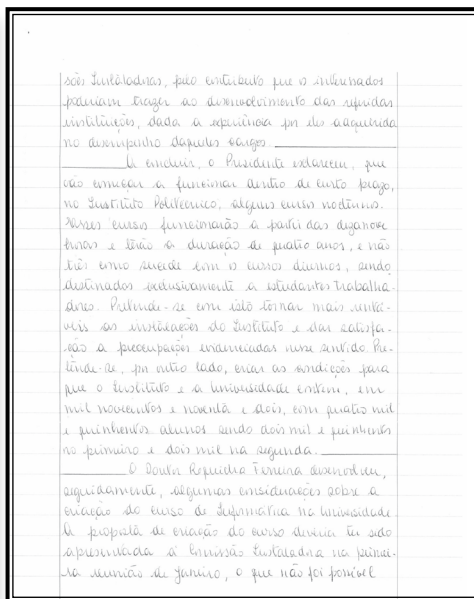 sões Instaladoras, pelo contributo que os interessados
poderiam trazer ao desenvolvimento das referidas
instituições, dada a experiência por eles adquerida
no desempenho daqueles cargos.
A concluir, o Presidente esclareceu, que
vão começar a funcionar dentro de curto prazo,
no Instituto Politécnico, alguns cursos nocturnos.
Esses cursos funcionarão a partir das dezanove
horas e terão a duração de quatro anos, e não
três como sucede com os cursos diurnos, sendo
destinados exclusivamente a estudantes trabalha-
dores. Pretende-se com isto tornar mais rentá-
veis as instalações do Instituto e dar satisfa-
ção a preocupações evidenciadas nesse sentido. Pre-
tende-se, por outro lado, criar as condições para
que o Instituto e a Universidade contem, em
mil novecentos e noventa e dois, com quatro mil
e quinhentos alunos sendo dois mil e quinhentos
no primeiro e dois mil na segunda.
O Doutor Ferreira desenvolveu,
seguidamente, algumas considerações sobre a
criação do curso de Informática na Universidade
A proposta de criação do curso deveria ter sido
apresentada à Comissão Instaladora na primei-
ra reunião de Janeiro, o que não foi possível